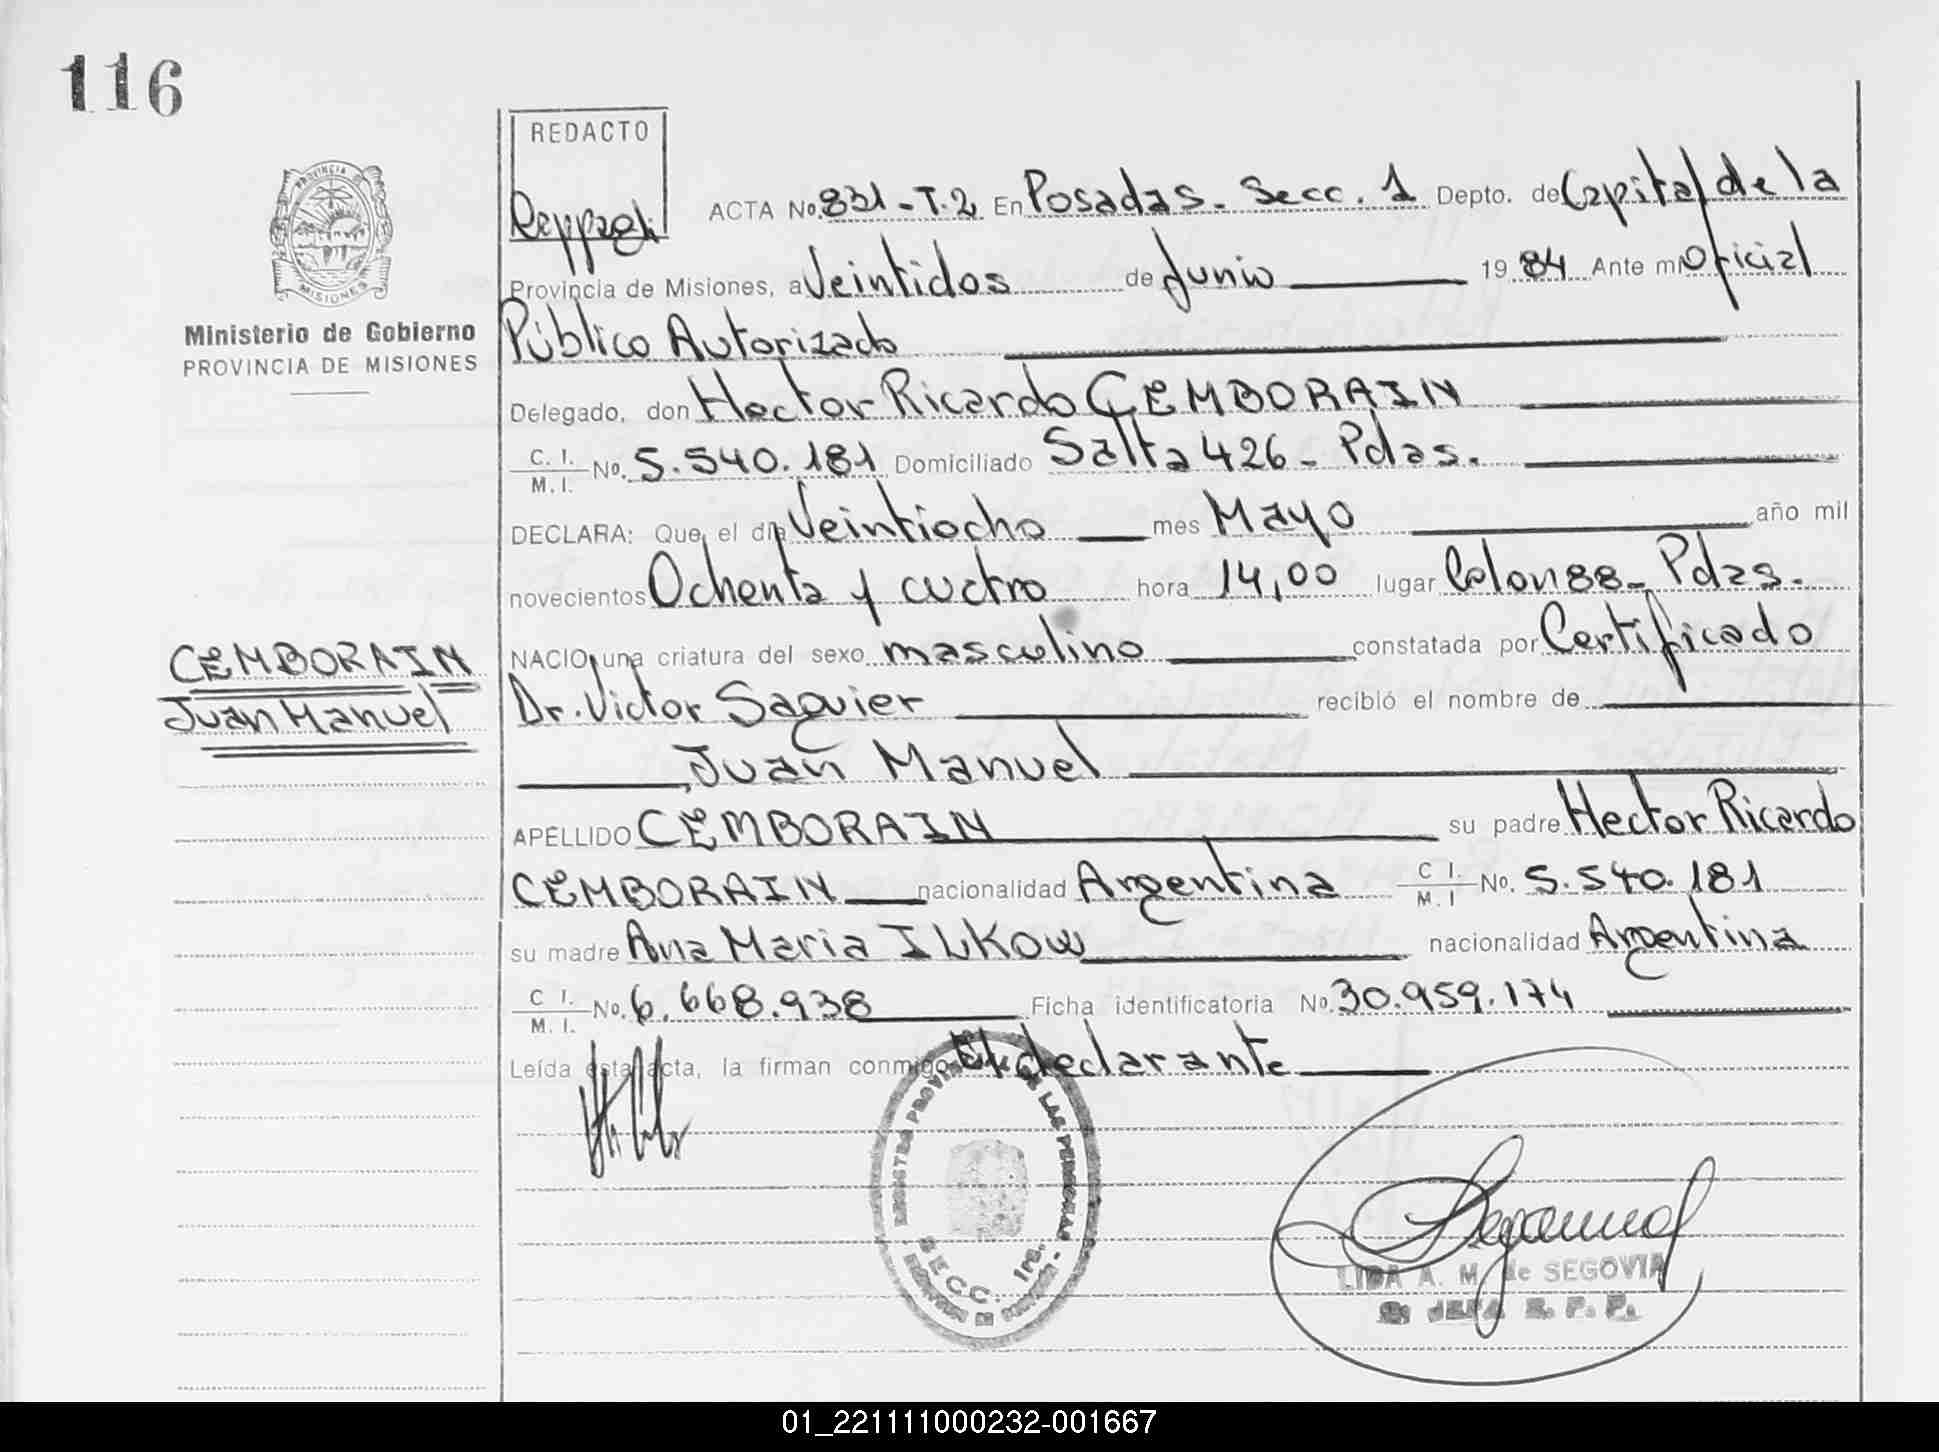 116
REDACTO
PROVINCIA DE
MISIONES
ACTA No. 831-T.2 En Posadas. Secc. 1 Depto. de Capital de la
Provincia de Misiones, a Veintidos de Junio 19 84 Ante mi Oficial
Ministerio de Gobierno
PROVINCIA DE MISIONES
Público Autorizado
Delegado, don Hector Ricardo CEMBORAIN
C. I.
M. I. No. 5.540.181 Domiciliado Salta 426 - Pdas.
DECLARA: Que el día Veintiocho mes Mayo año mil
novecientos Ochenta y cuatro hora 14,00 lugar Colon 88 - Pdas.
CEMBORAIN
Juan Manuel
NACIO una criatura del sexo masculino constatada por Certificado
Dr. Victor Saguier recibió el nombre de
Juan Manuel
APELLIDO CEMBORAIN su padre Hector Ricardo
CEMBORAIN nacionalidad Argentina C I. M. I No. 5.540.181
su madre Ana Maria ILKOW nacionalidad Argentina
C I.
M. I. No. 6.668.938 Ficha identificatoria No. 30.959.174
Leída esta acta, la firman conmigo El declarante
SECC. 1ra.
LIDA A. M. de SEGOVIA
JEFA R. P. P.
01_221111000232-001667